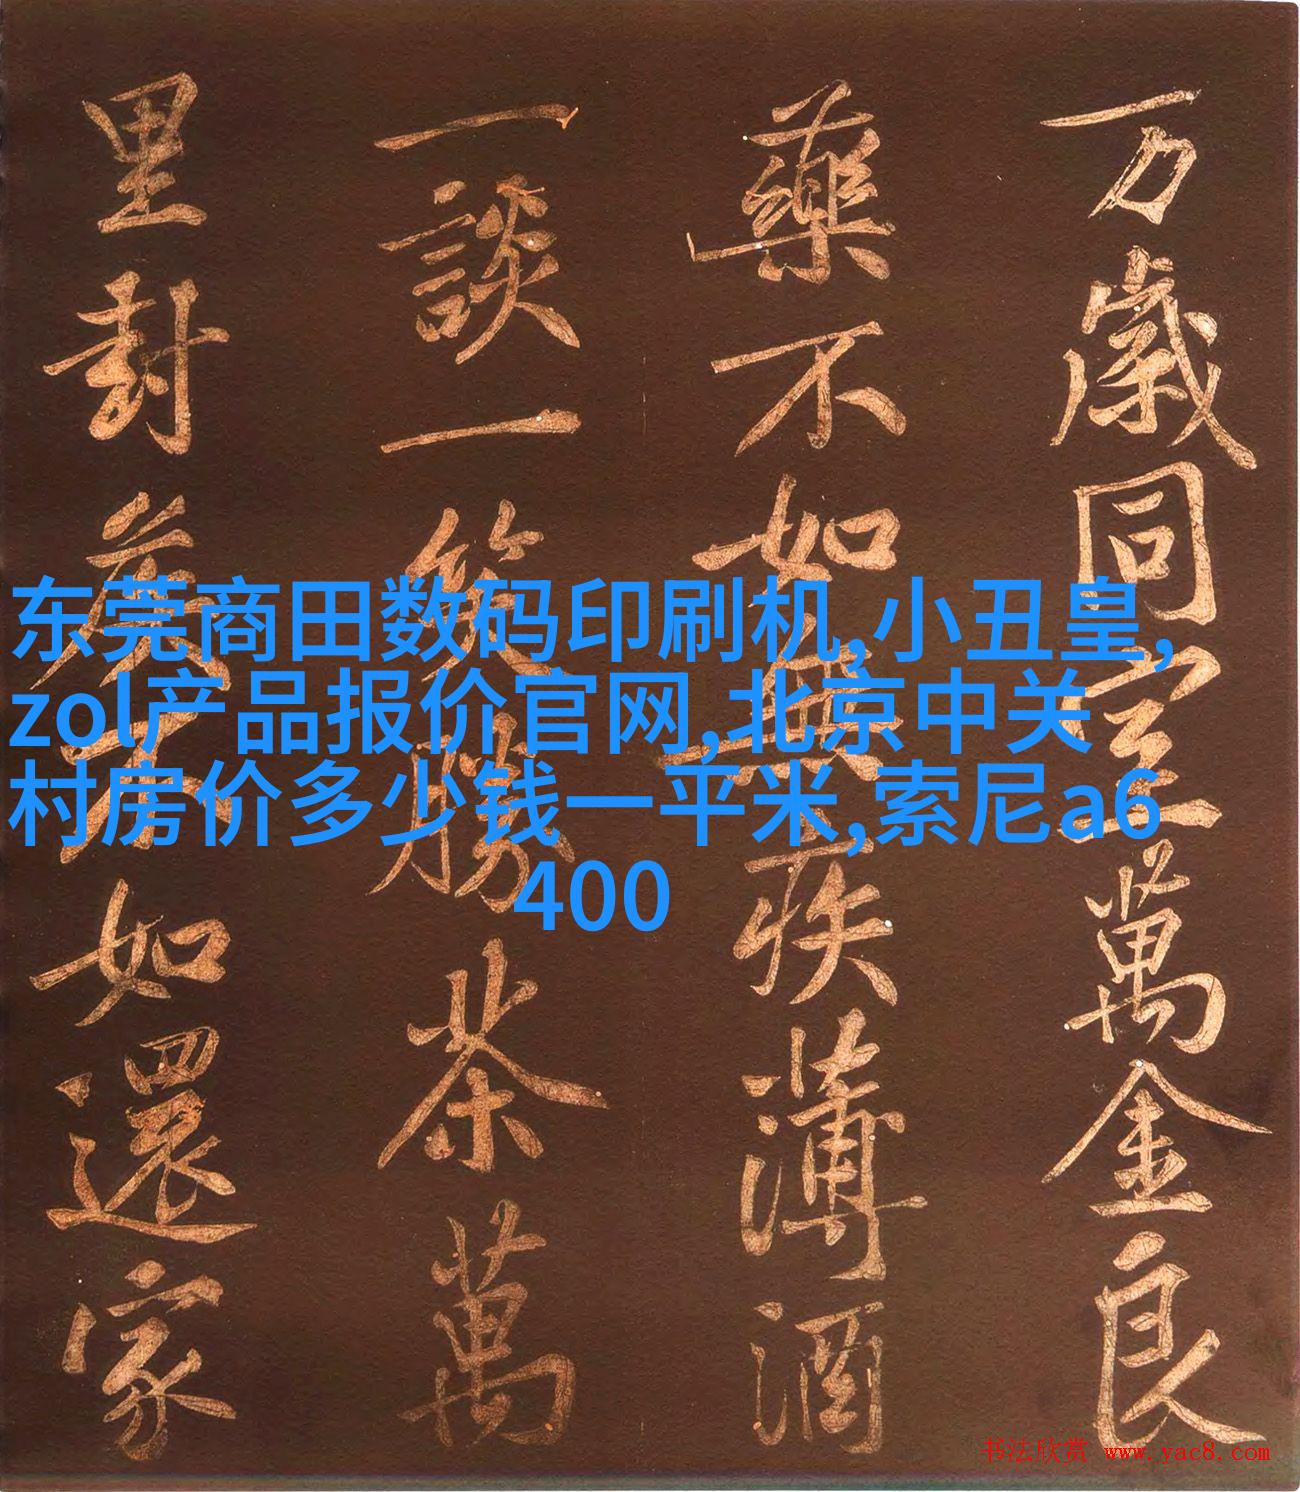 万歲同室萬金良
藥不如無疾薄酒
一談一笑勝茶萬
里封侯不如還家
东莞商田数码印刷机,小丑皇,
zol产品报价官网,北京中关
村房价多少钱一平米,索尼a6
400
书法欣赏 www.yac8.com